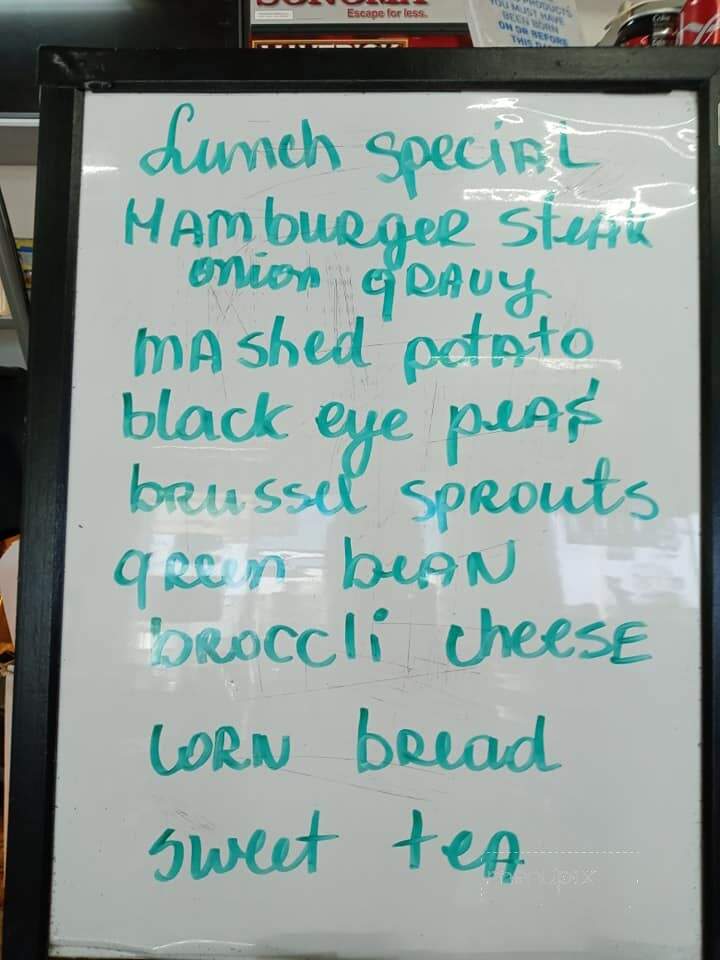 SONOMA
Escape for less.
MAVERICK
PRODUCTS
YOU MUST HAVE
BEEN BORN
ON OR BEFORE
THIS DA
Coke
Lunch special
HAMburger steak
onion gravy
mashed potato
black eye peas
brussel sprouts
green bean
broccli cheese
corn bread
sweet tea
menupix